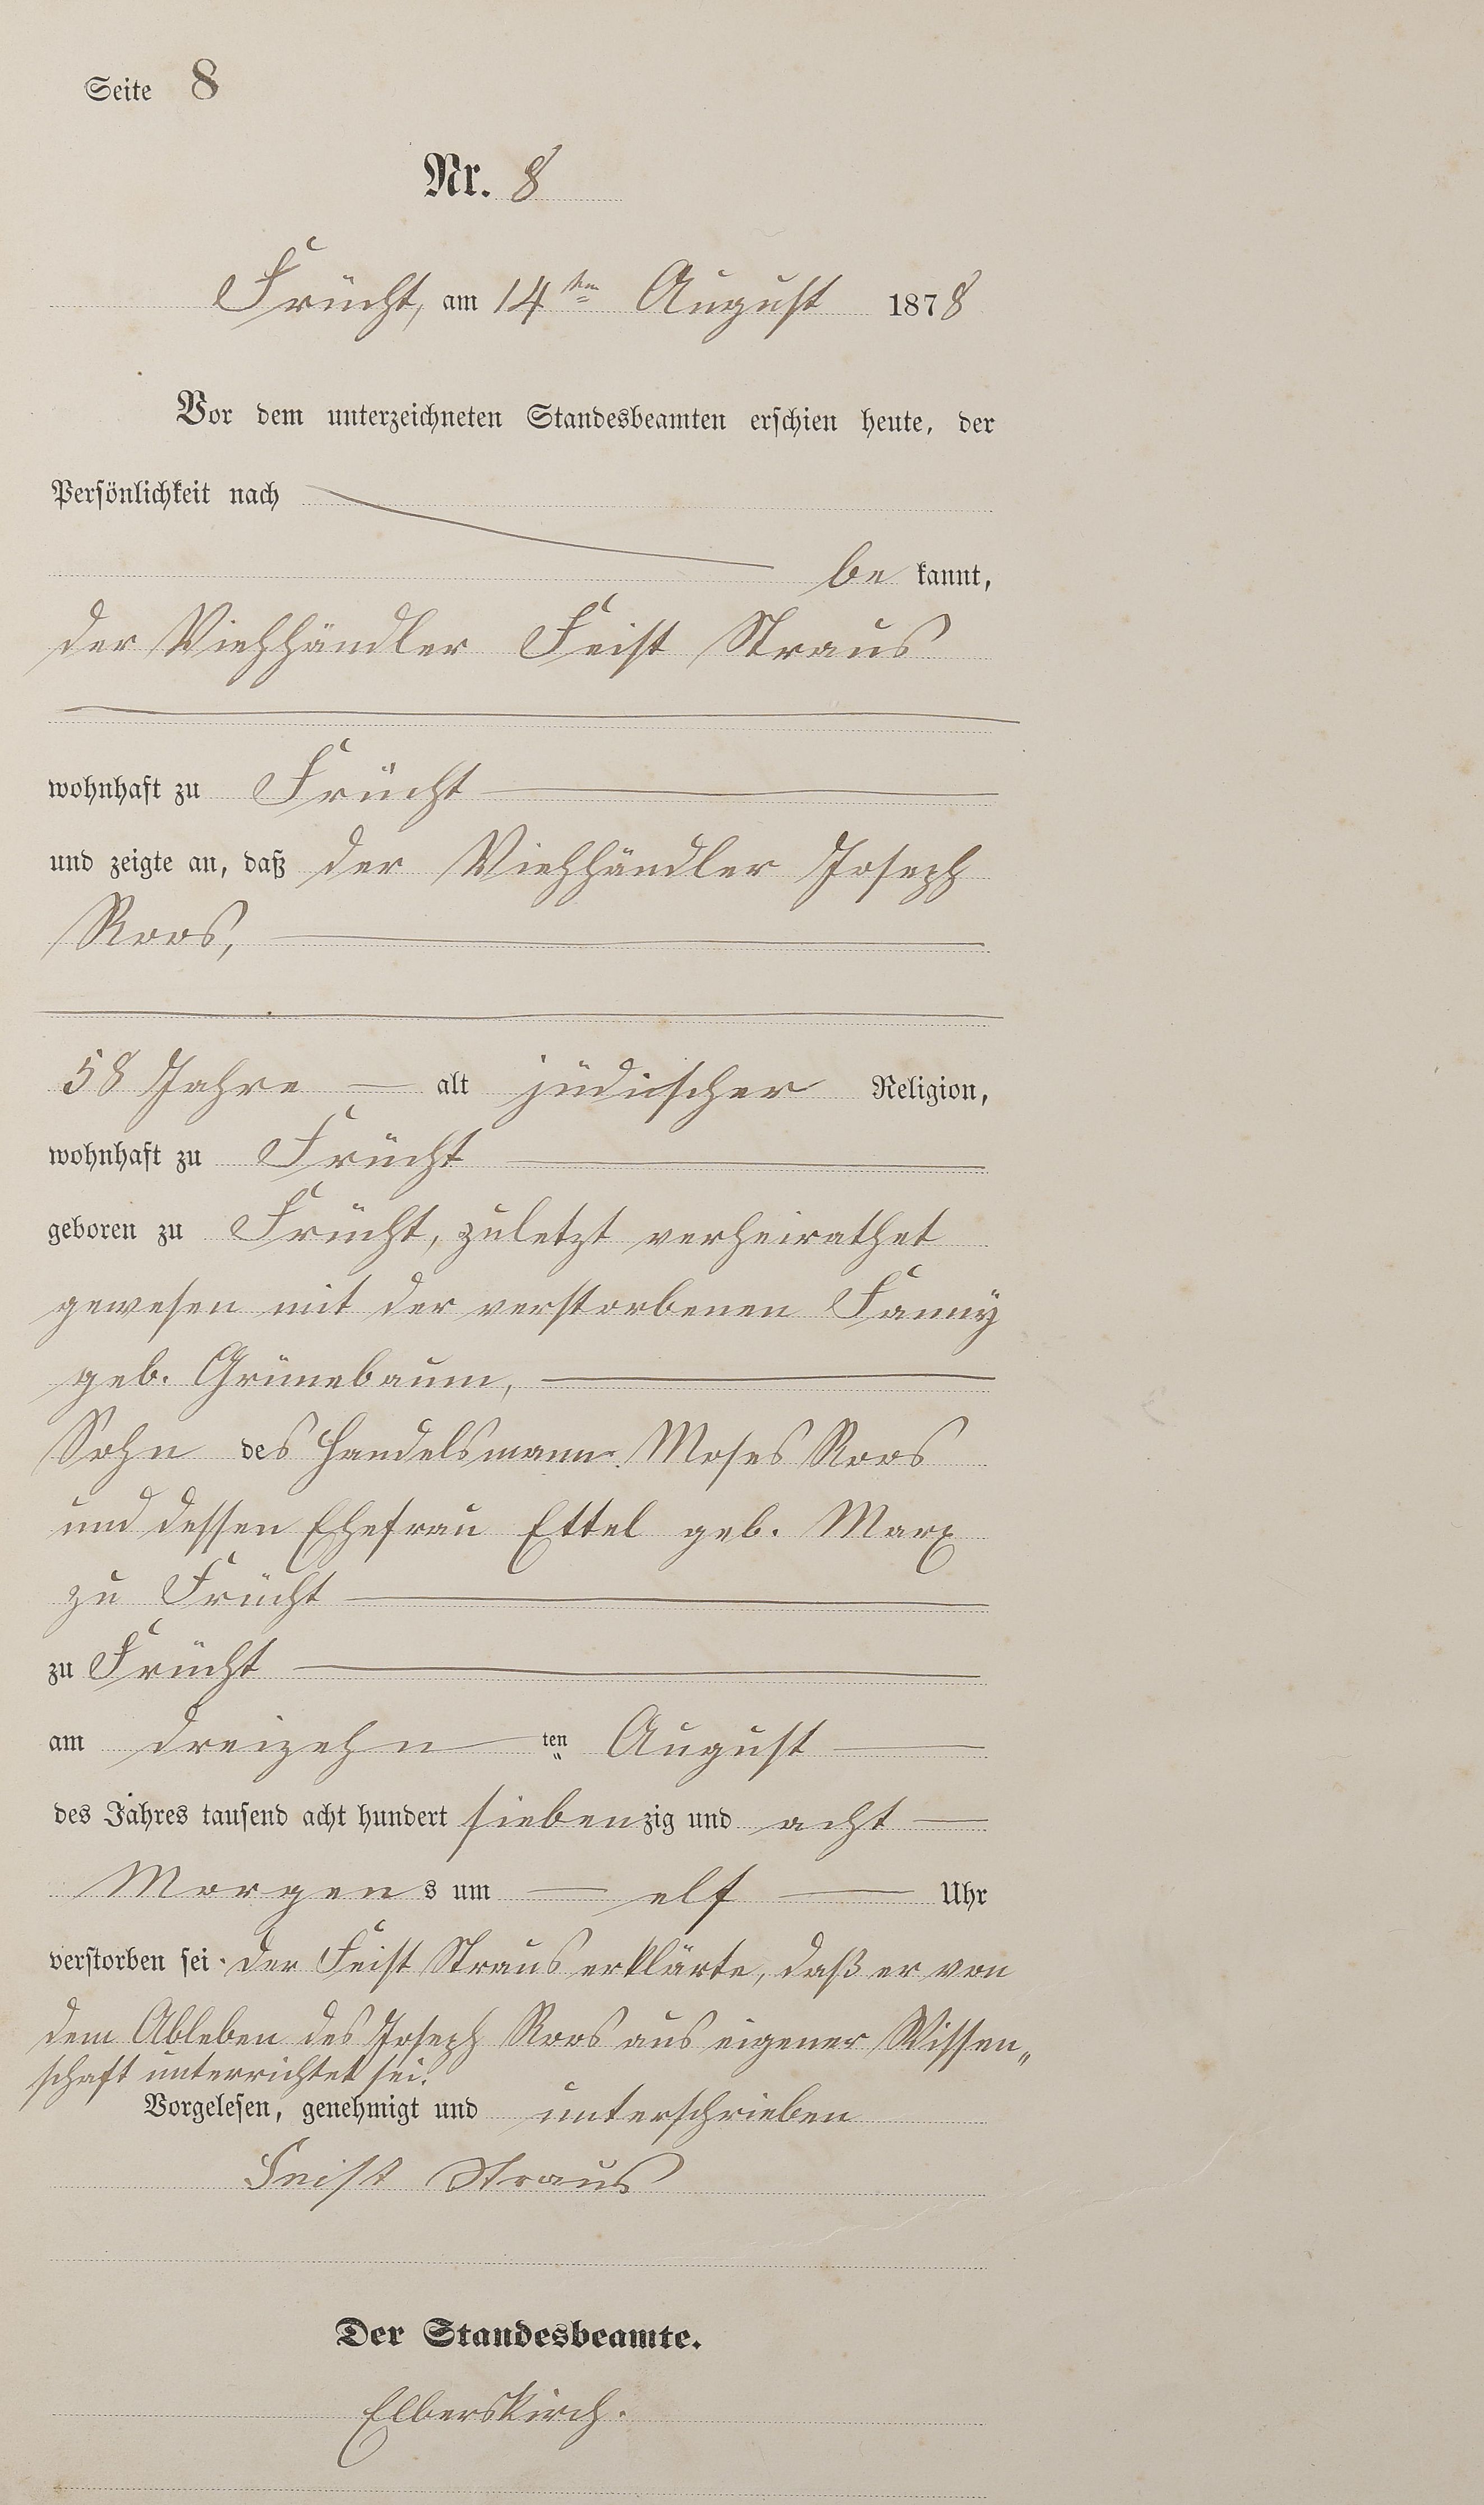 Seite 8
Nr. 8
Frücht, am 14ten August 1878
Vor dem unterzeichneten Standesbeamten erschien heute, der
Persönlichkeit nach
be kannt,
der Viehhändler Feist Straus
wohnhaft zu Frücht
und zeigte an, daß der Viehhändler Joseph
Roos,
58 Jahre alt jüdischer Religion,
wohnhaft zu Frücht
geboren zu Frücht, zuletzt verheirathet
gewesen mit der verstorbenen Fanny
geb. Grünebaum,
Sohn des Handelsmann Moses Roos
und dessen Ehefrau Ettel geb. Marx
zu Frücht
zu Frücht
am dreizehn ten August
des Jahres tausend acht hundert siebenzig und acht
Morgens um elf Uhr
verstorben sei. Der Feist Straus erklärte, daß er von
dem Ableben des Joseph Roos aus eigener Wissen„
schaft unterrichtet sei.
Vorgelesen, genehmigt und unterschrieben
Feist Straus
Der Standesbeamte.
Elberskirch.